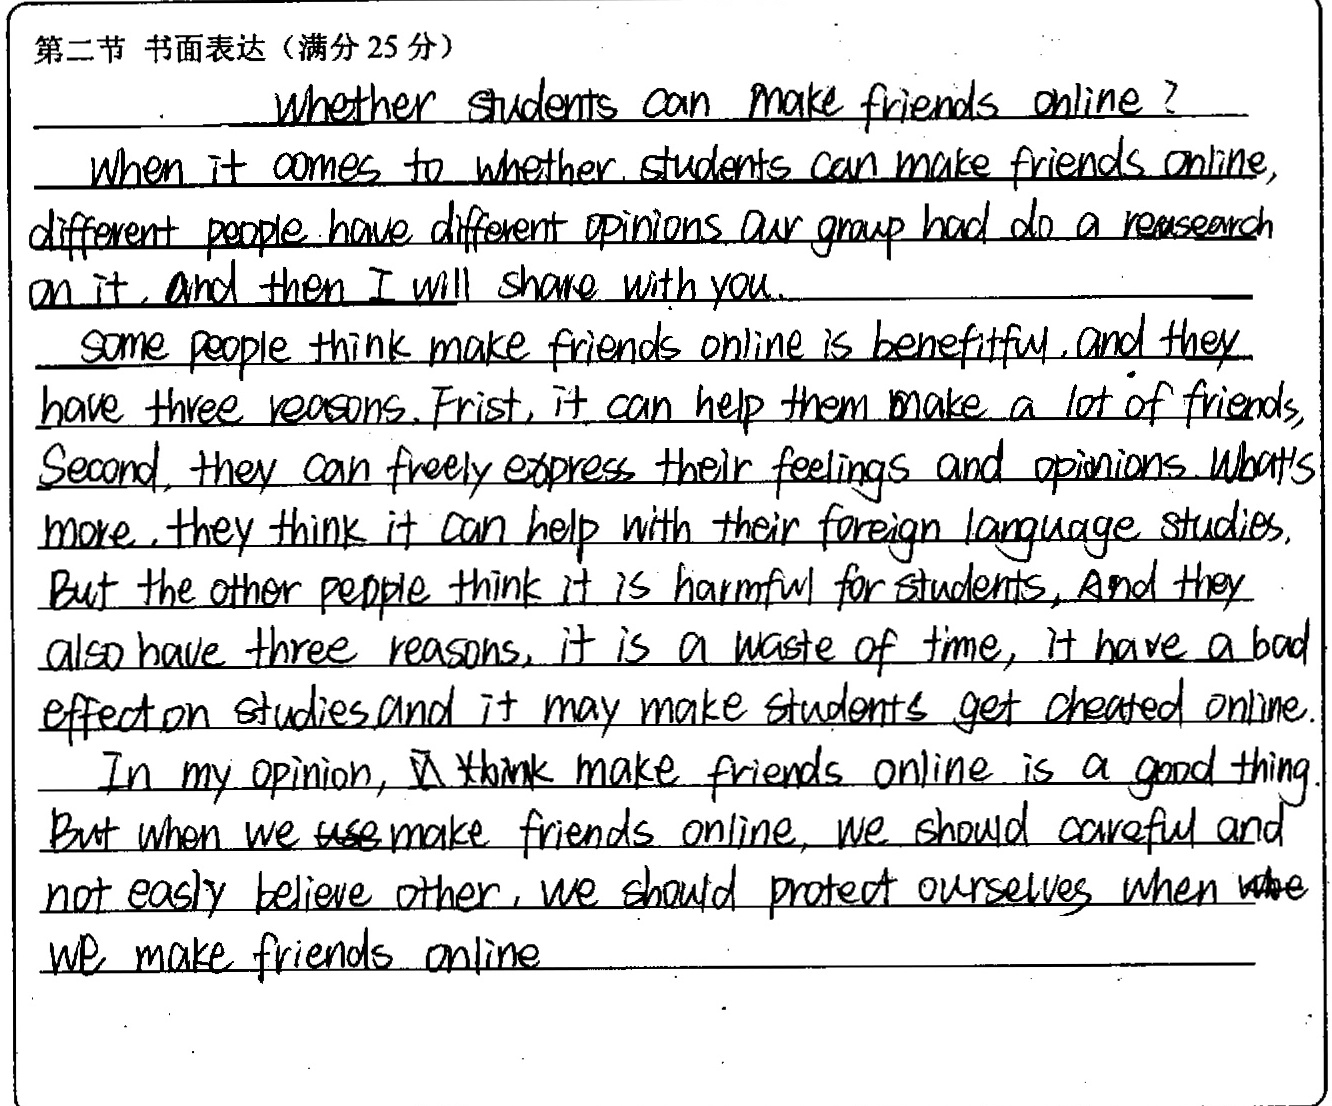 第二节 书面表达（满分 25 分）
Whether students can make friends online?
When it comes to whether students can make friends online,
different people have different opinions Our group had do a reasearch
on it, and then I will share with you.
Some people think make friends online is benefitful, and they
have three reasons. Frist, it can help them make a lot of friends,
Second, they can freely express their feelings and opinions. What's
more, they think it can help with their foreign language studies.
But the other people think it is harmful for students, And they
also have three reasons, it is a waste of time, it have a bad
effect on studies and it may make students get cheated online.
In my opinion, I think make friends online is a good thing.
But when we make friends online, we should careful and
not easly believe other, we should protect ourselves when
we make friends online